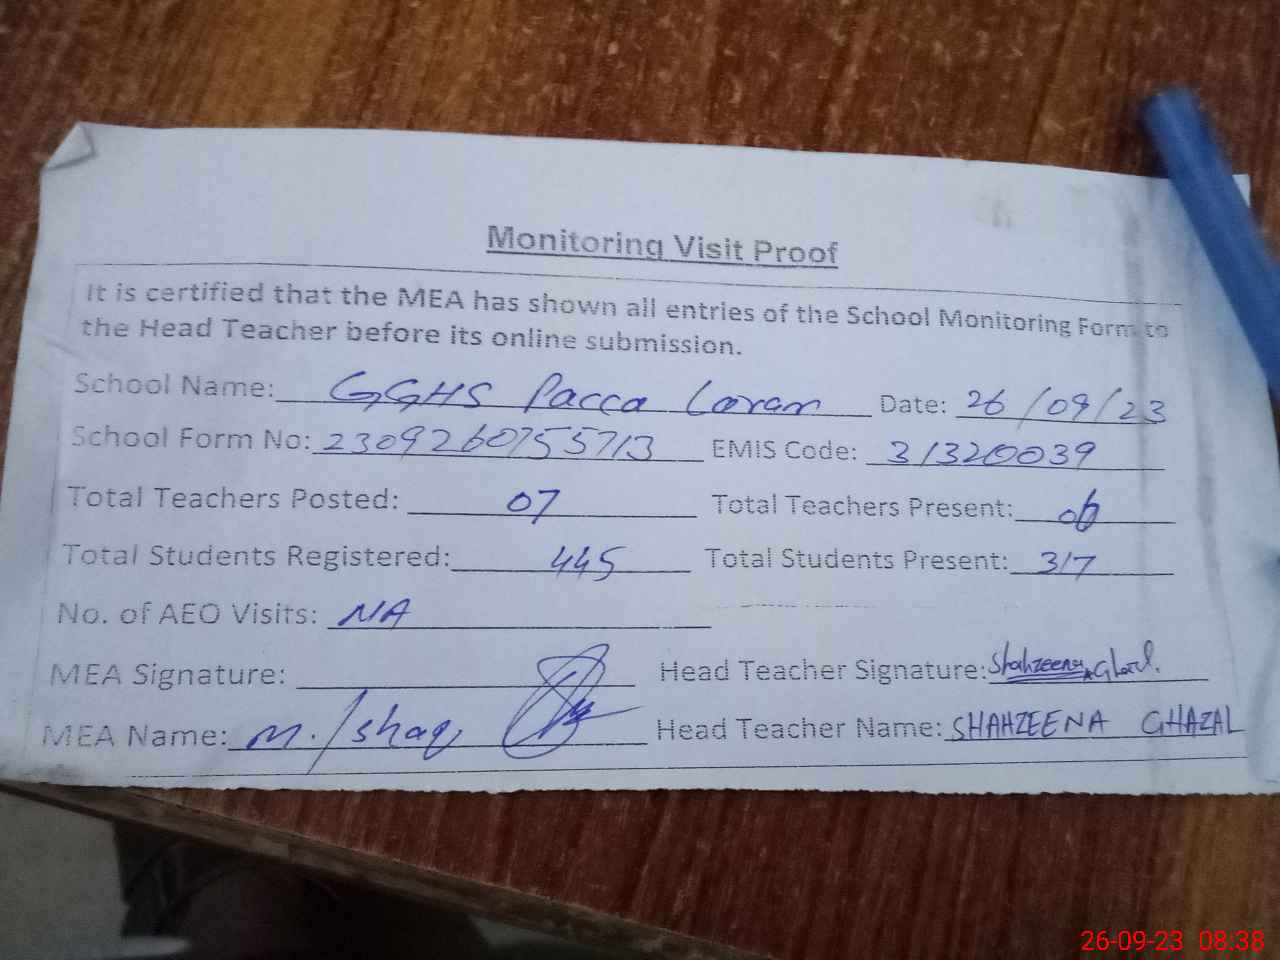 Monitoring Visit Proof
It is certified that the MEA has shown all entries of the School Monitoring Form to
the Head Teacher before its online submission.
School Name: GGHS Pacca Laran Date: 26/09/23
School Form No: 2309260755713 EMIS Code: 31320039
Total Teachers Posted: 07 Total Teachers Present: 06
Total Students Registered: 445 Total Students Present: 317
No. of AEO Visits: NA
MEA Signature: Head Teacher Signature: Shahzeena Ghazal.
MEA Name: M. Ishaq Head Teacher Name: SHAHZEENA GHAZAL
26-09-23 08:38